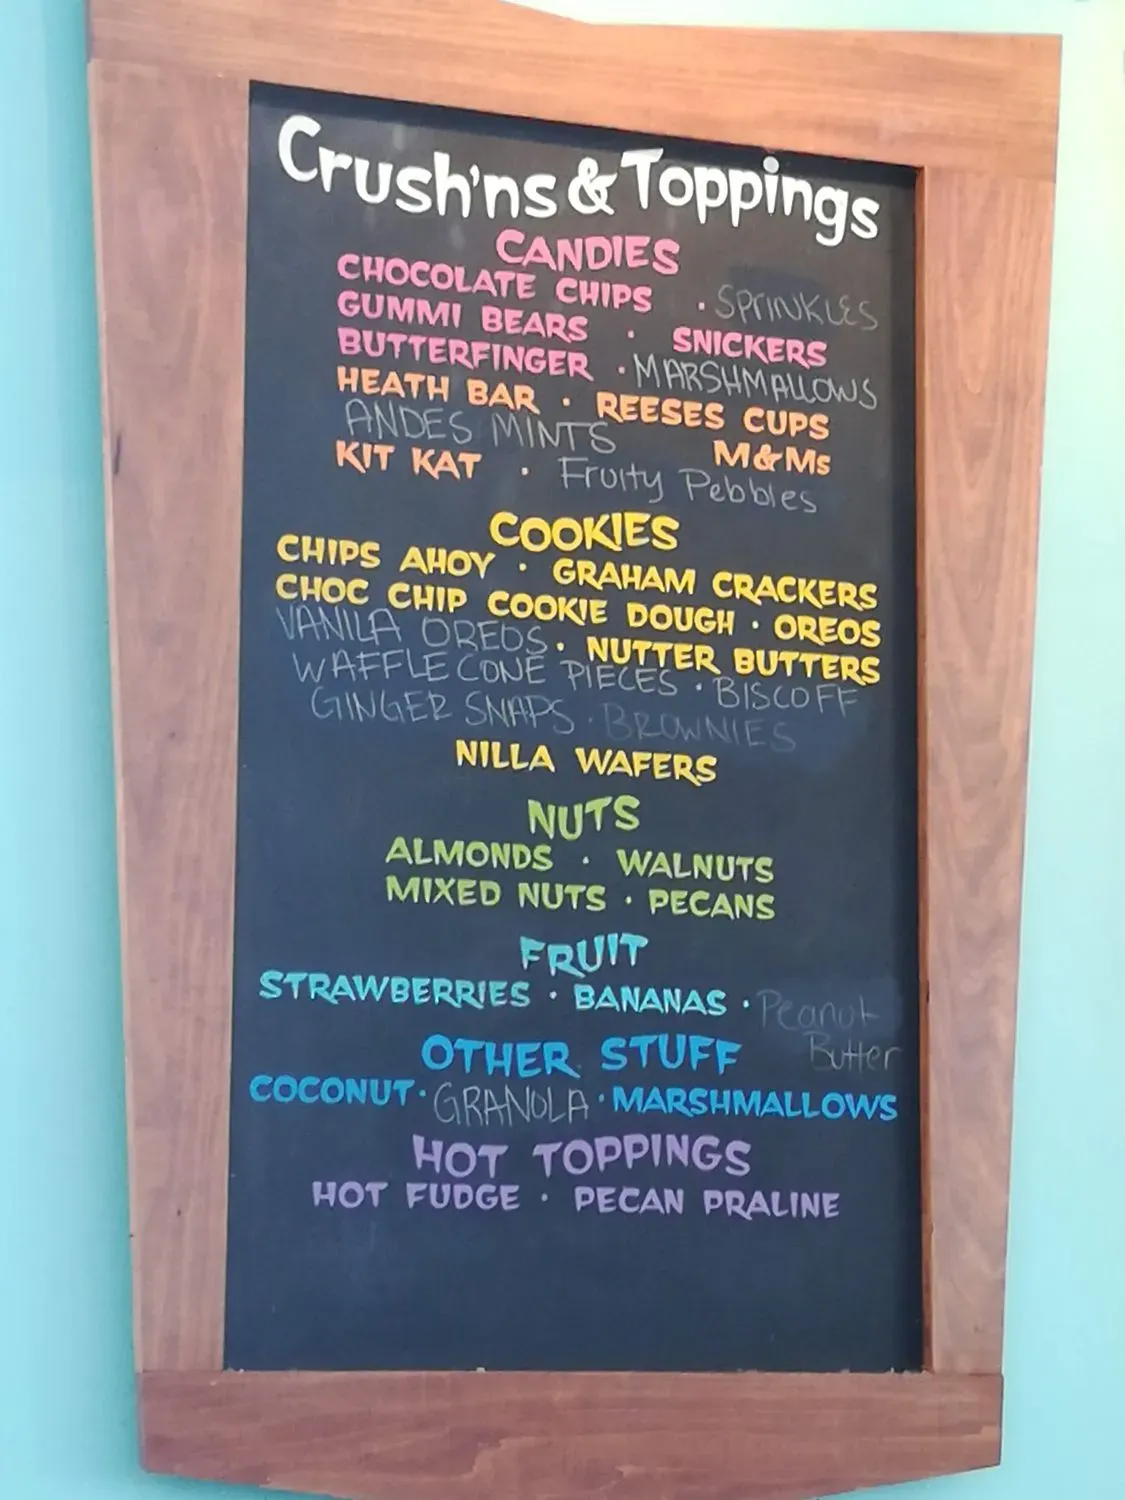 Crush'ns & Toppings
CANDIES
CHOCOLATE CHIPS · SPRINKLES
GUMMI BEARS · SNICKERS
BUTTERFINGER · MARSHMALLOWS
HEATH BAR · REESES CUPS
ANDES MINTS M&Ms
KIT KAT · Fruity Pebbles
COOKIES
CHIPS AHOY · GRAHAM CRACKERS
CHOC CHIP COOKIE DOUGH · OREOS
VANILA OREOS · NUTTER BUTTERS
WAFFLE CONE PIECES · BISCOFF
GINGER SNAPS · BROWNIES
NILLA WAFERS
NUTS
ALMONDS · WALNUTS
MIXED NUTS · PECANS
FRUIT
STRAWBERRIES · BANANAS · Peanut
Butter
OTHER STUFF
COCONUT · GRANOLA · MARSHMALLOWS
HOT TOPPINGS
HOT FUDGE · PECAN PRALINE